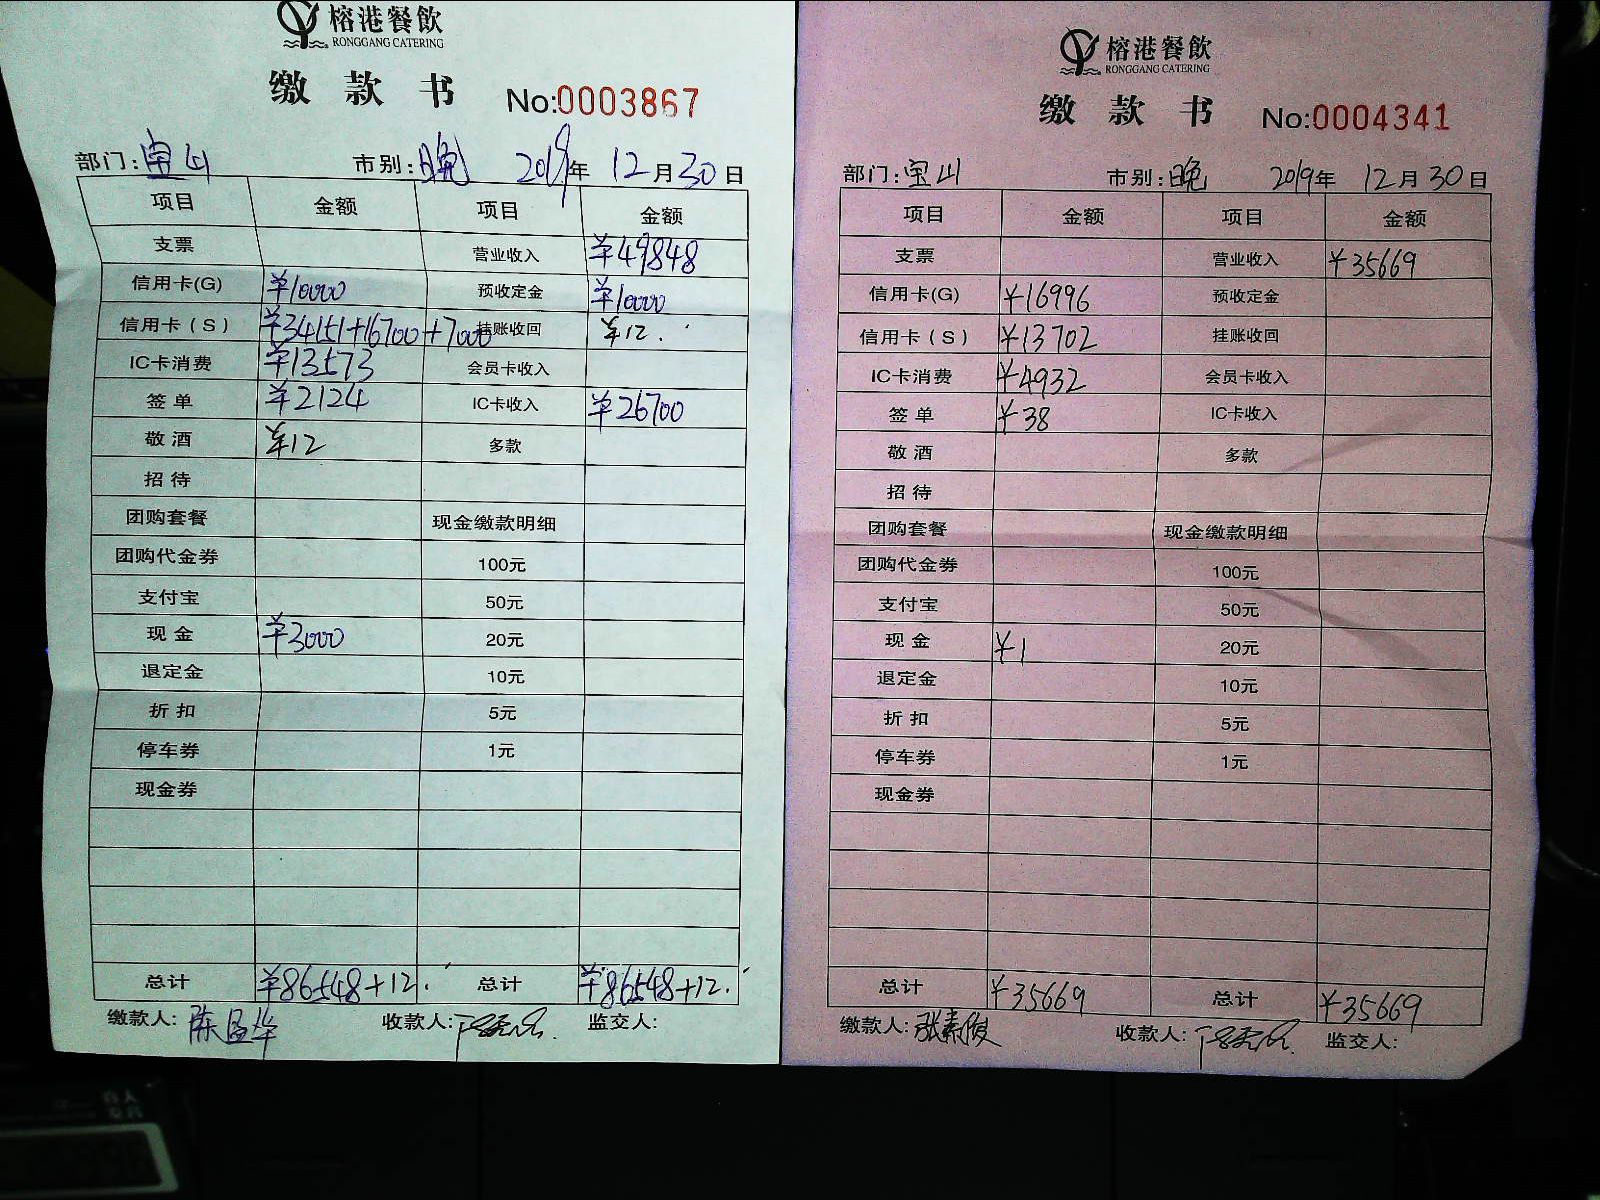 榕港餐飲
RONGGANG CATERING
缴款书 No:0003867
部门:宝山 市别:晚 2019年12月30日
项目 金额 项目 金额
支票 营业收入 ¥49848
信用卡(G) ¥10000 预收定金 ¥10000
信用卡(S) ¥34151+16700+7000 挂账收回 ¥12.
IC卡消费 ¥13573 会员卡收入
签单 ¥2124 IC卡收入 ¥26700
敬酒 ¥12 多款
招待
团购套餐 现金缴款明细
团购代金券 100元
支付宝 50元
现金 ¥3000 20元
退定金 10元
折扣 5元
停车券 1元
现金券
总计 ¥86548+12. 总计 ¥86548+12.
缴款人: 收款人: 监交人:
榕港餐飲
RONGGANG CATERING
缴款书 No:0004341
部门:宝山 市别:晚 2019年12月30日
项目 金额 项目 金额
支票 营业收入 ¥35669
信用卡(G) ¥16996 预收定金
信用卡(S) ¥13702 挂账收回
IC卡消费 ¥4932 会员卡收入
签单 ¥38 IC卡收入
敬酒 多款
招待
团购套餐 现金缴款明细
团购代金券 100元
支付宝 50元
现金 ¥1 20元
退定金 10元
折扣 5元
停车券 1元
现金券
总计 ¥35669 总计 ¥35669
缴款人: 收款人: 监交人: